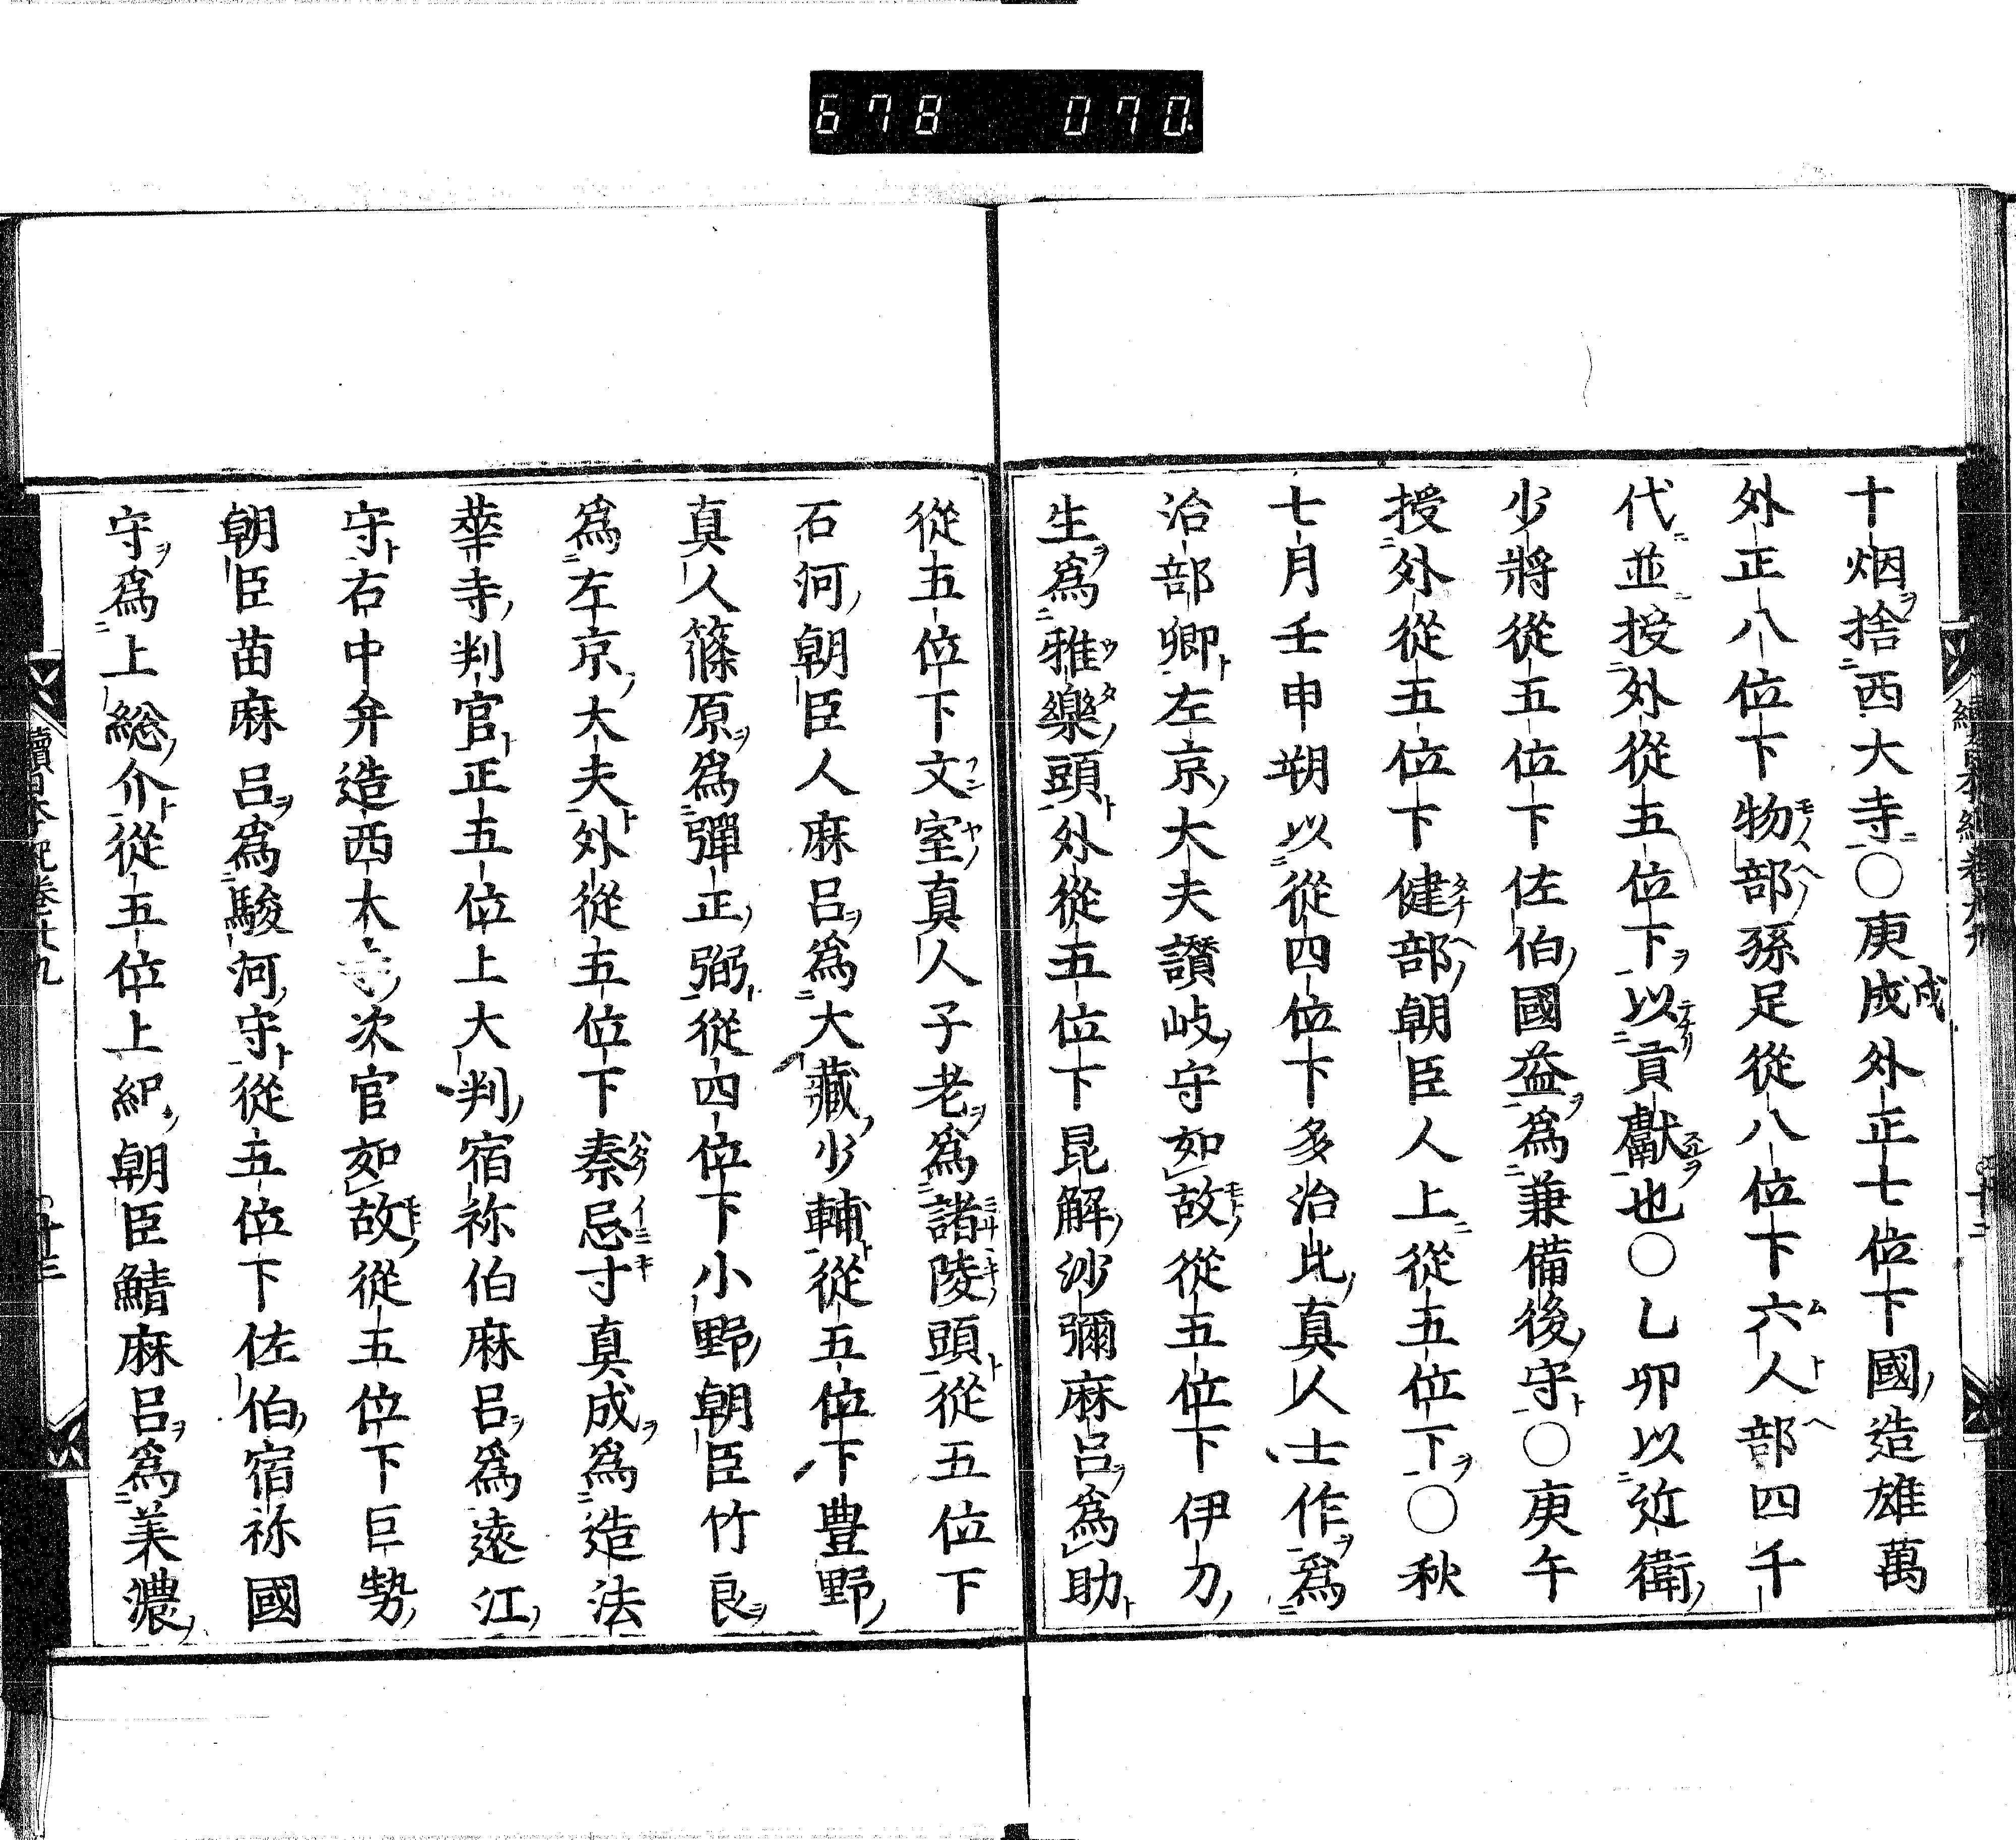 678 070.
十烟捨西大寺○庚戌外正七位下國造雄萬
外正八位下物部孫足從八位下六人部四千
代並授外從五位下以貢獻也○乙卯以近衛
少將從五位下佐伯國益爲兼備後守○庚午
授外從五位下健部朝臣人上從五位下○秋
七月壬申朔以從四位下多治比真人士作爲
治部卿左京大夫讃岐守如故從五位下伊刀
生爲雅樂頭外從五位下昆解沙彌麻呂爲助
從五位下文室真人子老爲諸陵頭從五位下
石河朝臣人麻呂爲大藏少輔從五位下豊野
真人篠原爲彈正弼從四位下小野朝臣竹良
爲左京大夫外從五位下秦忌寸真成爲造法
華寺判官正五位上大判宿祢伯麻呂爲遠江
守右中弁造西大寺次官如故從五位下巨勢
朝臣苗麻呂爲駿河守從五位下佐伯宿祢國
守爲上総介從五位上紀朝臣鯖麻呂爲美濃